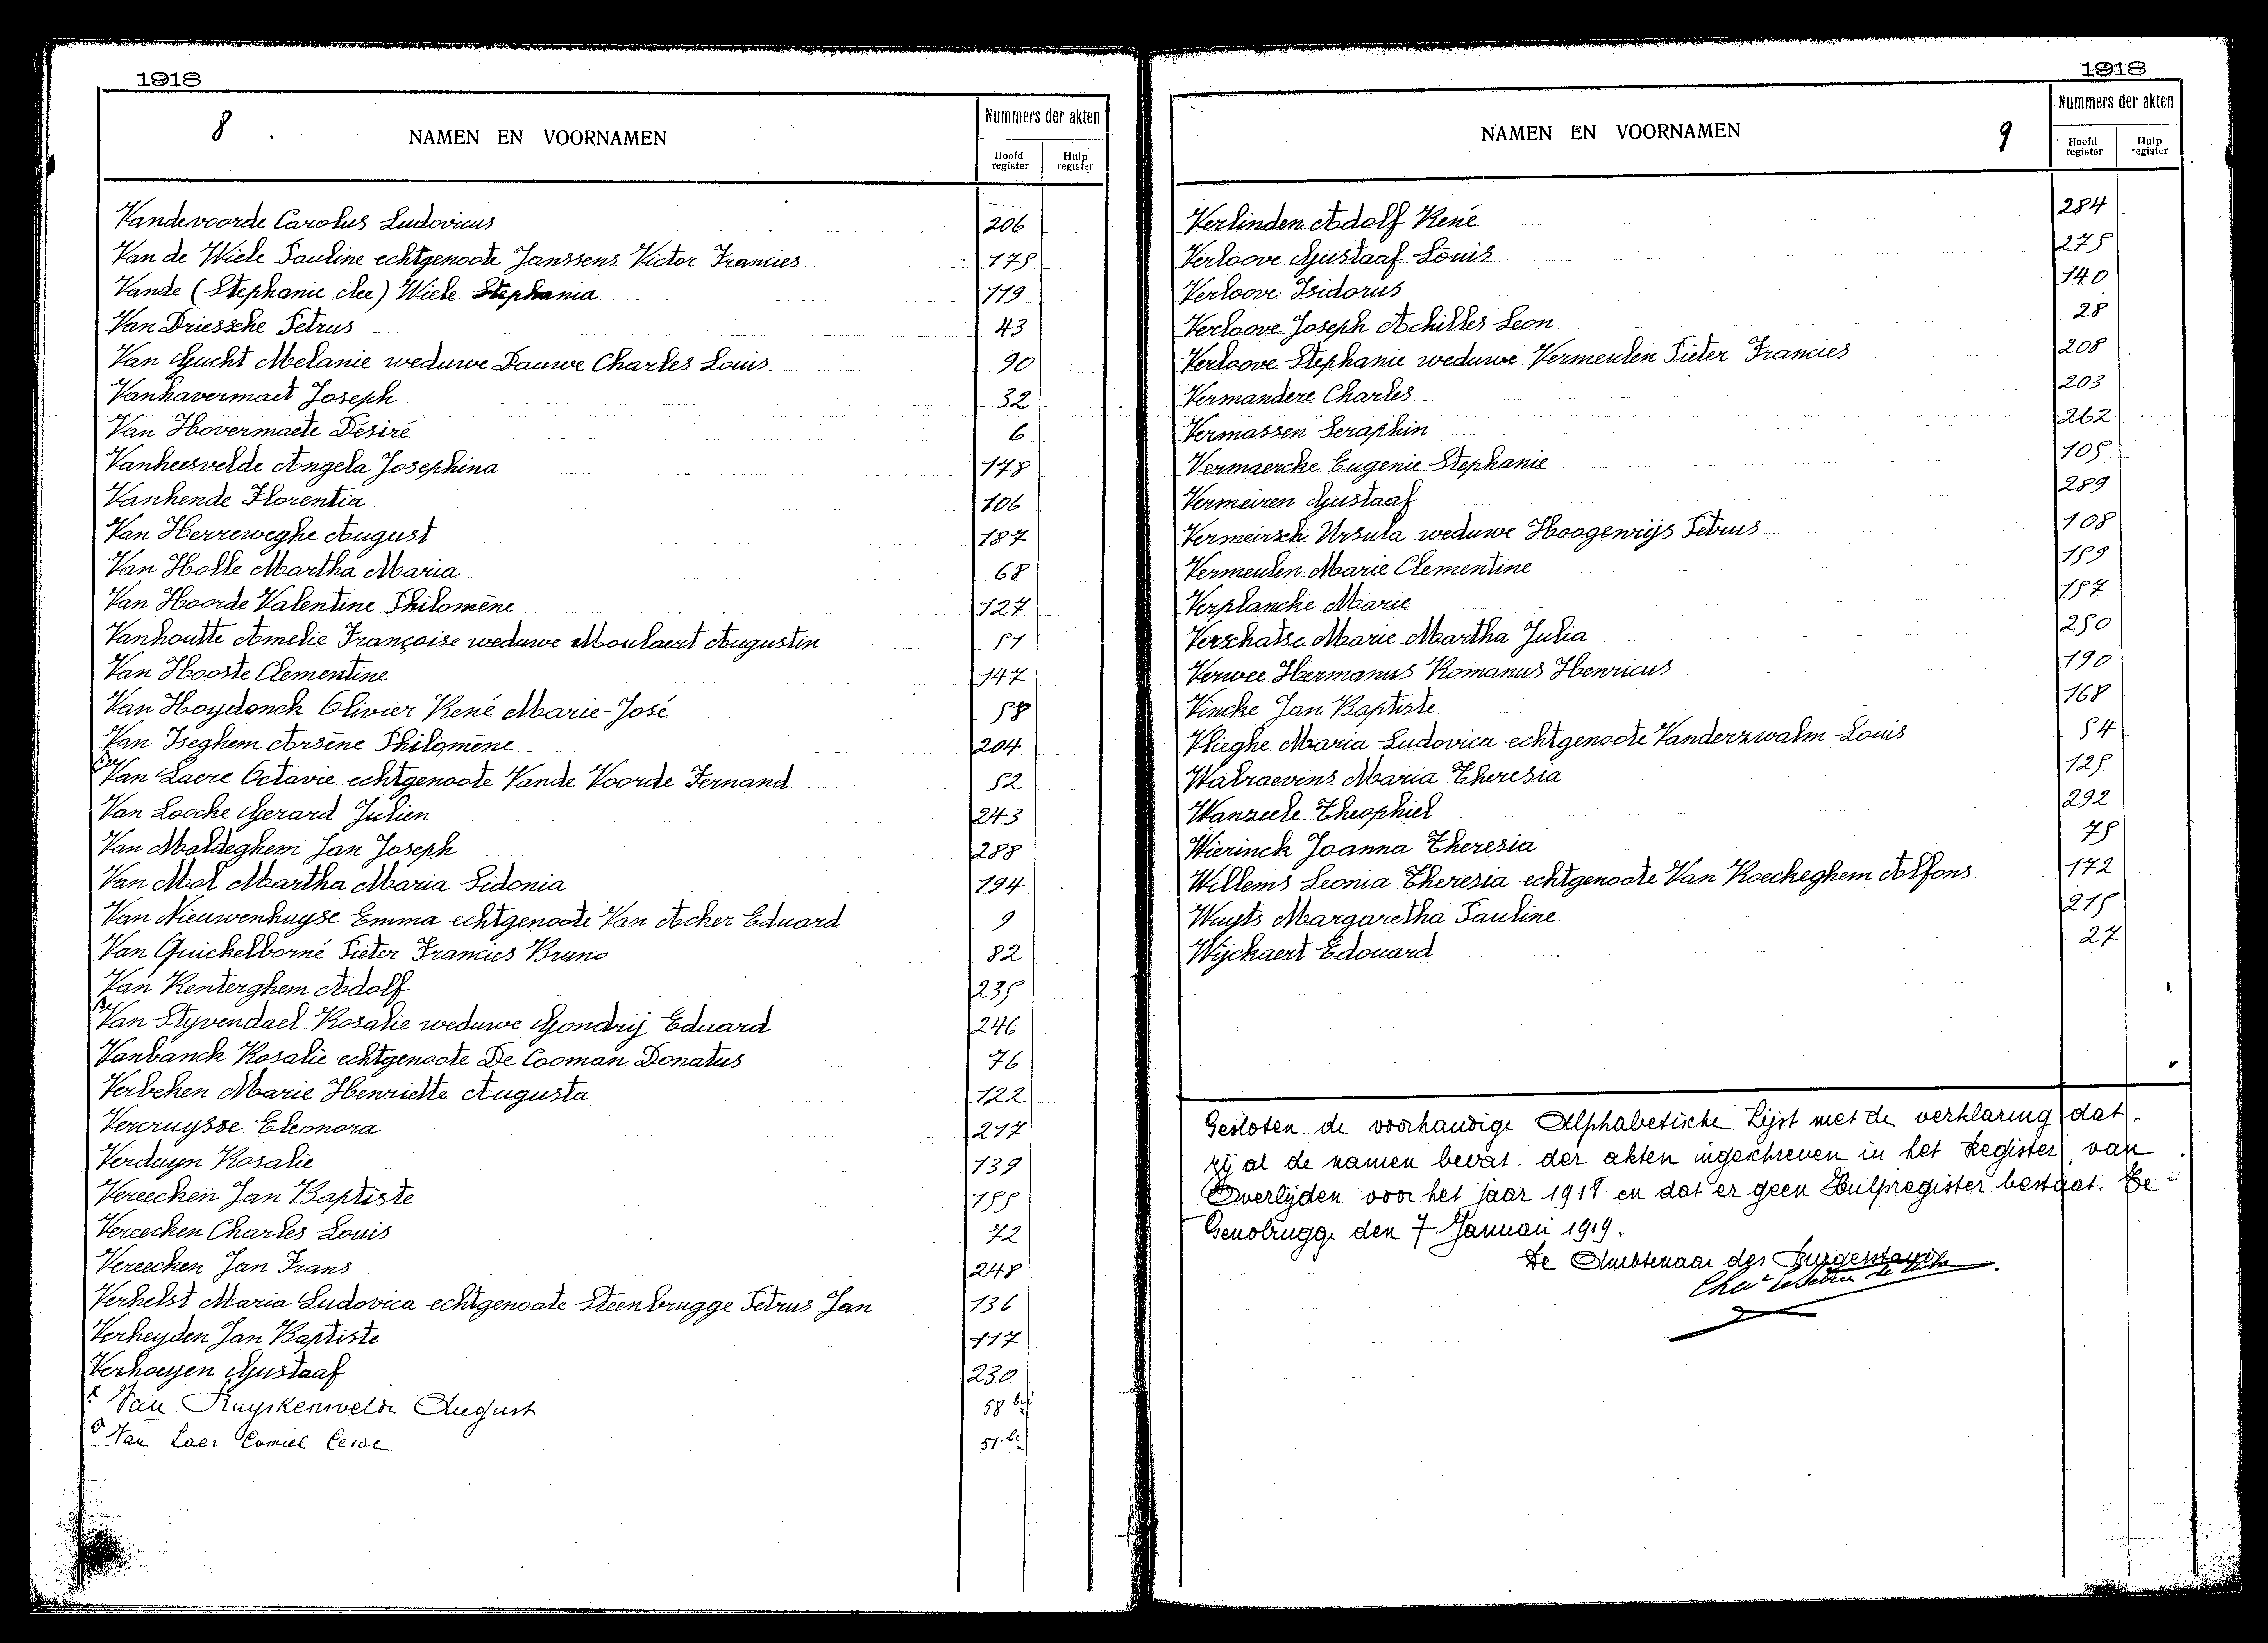 1918
8
NAMEN EN VOORNAMEN
Nummers der akten
Hoofd register
Hulp register
Vandevoorde Carolus Ludovicus 206
Van de Wiele Pauline echtgenoote Janssens Victor Francies 175
Vande (Stephanie clee) Wiele Stephania 119
Van Driessche Petrus 43
Van Gucht Melanie weduwe Dauwe Charles Louis 90
Vanhavermaet Joseph 32
Van Hovermaete Désiré 6
Vanheesvelde Angela Josephina 178
Vanhende Florentia 106
Van Herreweghe August 187
Van Holle Martha Maria 68
Van Hoorde Valentine Philomène 127
Vanhoutte Amelie Françoise weduwe Moulaert Augustin 51
Van Hooste Clementine 147
Van Hoydonck Olivier René Marie-José 58
Van Iseghem Arsène Philomène 204
Van Laere Octavie echtgenoote Vande Voorde Fernand 52
Van Loocke Gerard Julien 243
Van Maldeghem Jan Joseph 288
Van Mol Martha Maria Sidonia 194
Van Nieuwenhuyse Emma echtgenoote Van Acker Eduard 9
Van Quickelborné Pieter Francies Bruno 82
Van Renterghem Adolf 235
Van Styvendael Rosalie weduwe Gondrij Eduard 246
Vanbanck Rosalie echtgenoote De Cooman Donatus 76
Verbeken Marie Henriette Augusta 122
Vercruysse Eleonora 217
Verduyn Rosalie 139
Vereecken Jan Baptiste 155
Vereecken Charles Louis 72
Vereecken Jan Frans 248
Verhelst Maria Ludovica echtgenoote Steenbrugge Petrus Jan 136
Verheyden Jan Baptiste 117
Verhoeyen Gustaaf 230
Van Ruyskenvelde August 58 bis
Van Laer Camiel Cesar 51 bis
1918
NAMEN EN VOORNAMEN
9
Nummers der akten
Hoofd register
Hulp register
Verlinden Adolf René 284
Verloove Gustaaf Louis 275
Verloove Isidorus 140
Verloove Joseph Achilles Leon 28
Verloove Stephanie weduwe Vermeulen Pieter Francies 208
Vermandere Charles 203
Vermassen Seraphin 262
Vermaercke Eugenie Stephanie 105
Vermeiren Gustaaf 289
Vermeirsch Ursula weduwe Hoogewijs Petrus 108
Vermeulen Marie Clementine 159
Verplancke Marie 157
Verschatse Marie Martha Julia 250
Verwee Hermanus Romanus Henricus 190
Vincke Jan Baptiste 168
Vlieghe Maria Ludovica echtgenoote Vanderzwalm Louis 54
Walraevens Maria Theresia 125
Wanzeele Theophiel 292
Wierinck Joanna Theresia 75
Willems Leonia Theresia echtgenoote Van Koeckeghem Alfons 172
Wuyts Margaretha Pauline 215
Wijckaert Edouard 27
Gesloten de voorhandige Alphabetische Lijst met de verklaring dat
zij al de namen bevat der akten ingeschreven in het Register van
Overlijden voor het jaar 1918 en dat er geen Hulpregister bestaat. Te
den 7 Januari 1919.
De Ambtenaar des Burgerstands